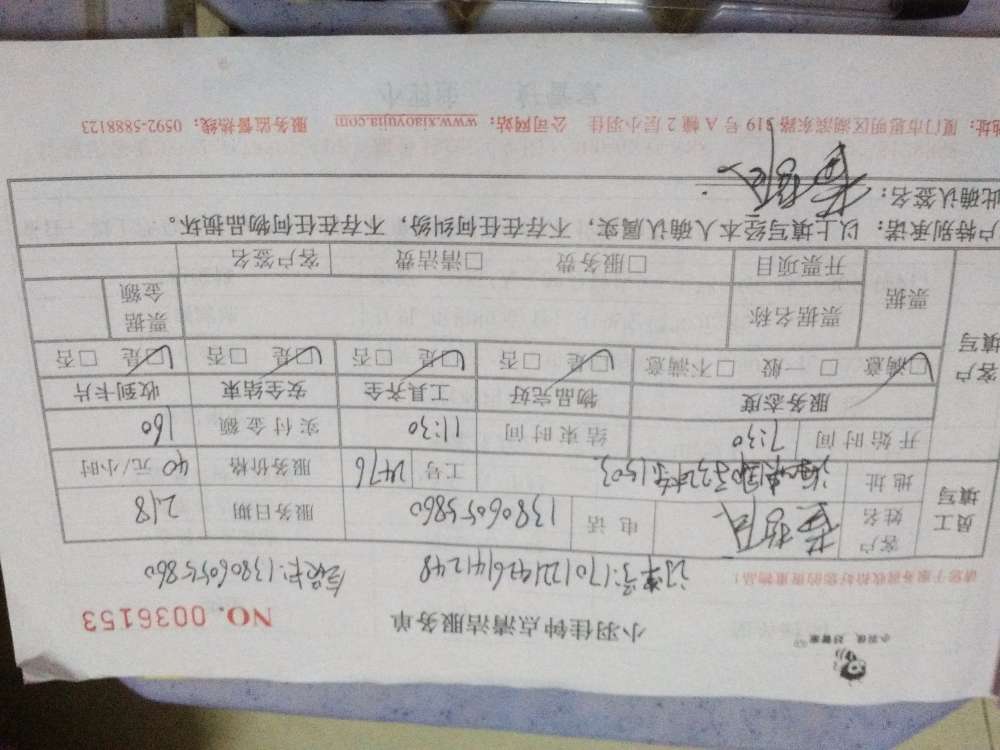 小羽佳 好管家
小羽佳钟点清洁服务单 NO. 0036153
请您于服务前收拾好您的贵重物品！
订单号:170121426141248 会员卡:13806055860
员工填写 客户姓名 电话 13806055860 服务日期 2.18
地址 工号 2476 服务价格 40元/小时
开始时间 7:30 结束时间 11:30 实付金额 160
客户填写 服务态度 物品完好 工具齐全 安全结束 收到卡片
☑满意 □一般 □不满意 ☑是 □否 ☑是 □否 ☑是 □否 ☑是 □否
票据 票据名称 票据金额
开票项目 □服务费 □清洁费 客户签名
户特别承诺：以上填写经本人确认属实，不存在任何纠纷，不存在任何物品损坏。
此确认签名：
地址：厦门市思明区湖滨东路319号A幢2层小羽佳 公司网站：www.xiaoyujia.com 服务监督热线：0592-5888123